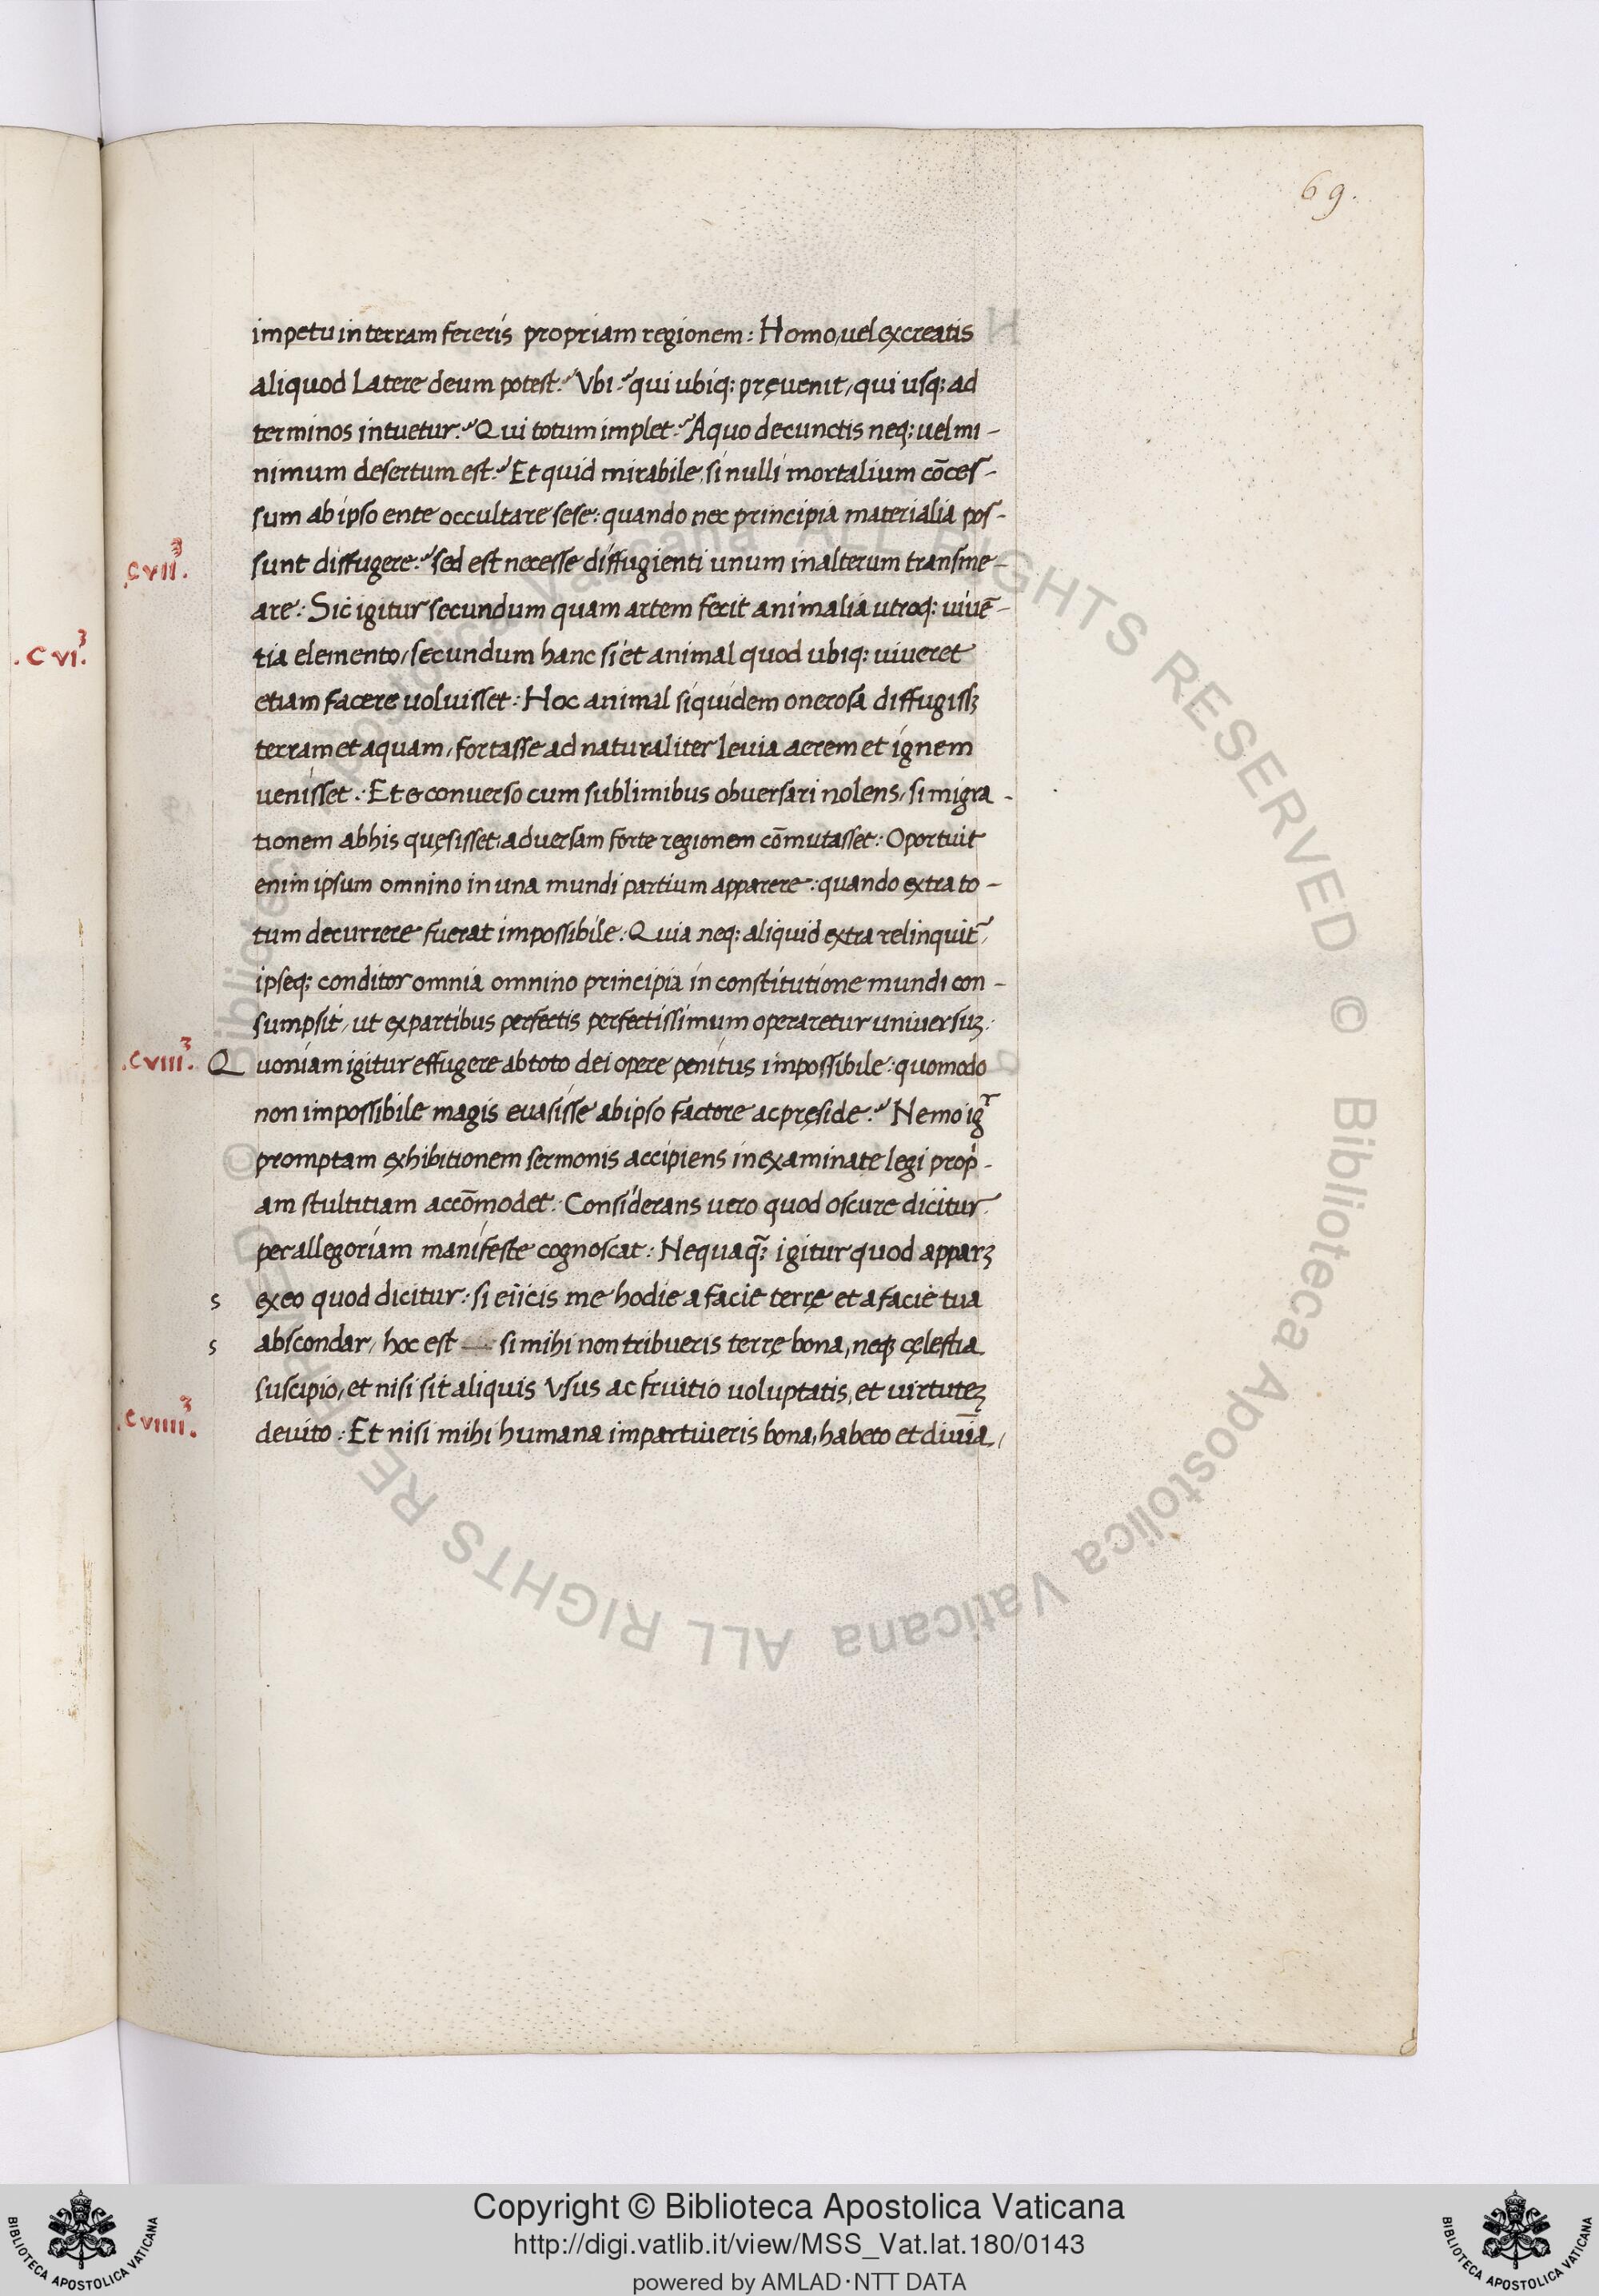 69.
impetu in terram fereris propriam regionem: Homo, uel ex creatis
aliquod Latere deum potest? Vbi? qui ubiq; pręuenit, qui usq; ad
terminos intuetur? Qui totum implet? A quo de cunctis neq; uel mi-
nimum desertum est? Et quid mirabile, si nulli mortalium cōces-
sum ab ipso ente occultare sese: quando nec principia materialia pos-
.CVII.³
sunt diffugere? sed est necesse diffugienti unum in alterum transme-
are: Sic igitur secundum quam artem fecit animalia utroq; uiuē-
.CVI.³
tia elemento, secundum hanc si et animal quod ubiq; uiueret
etiam facere uoluisset: Hoc animal siquidem onerosa diffugissꝫ
terram et aquam, fortasse ad naturaliter leuia aerem et ignem
uenisset: Et e conuerso cum sublimibus obuersari nolens, si migra-
tionem ab his quęsisset, aduersam forte regionem cōmutasset: Oportuit
enim ipsum omnino in una mundi partium apparere: quando extra to-
tum decurrere fuerat impossibile: Quia neq; aliquid extra relinquit̃,
ipseq; conditor omnia omnino principia in constitutione mundi con-
sumpsit, ut ex partibus perfectis perfectissimum operaretur uniuersuꝫ:
.CVIII.³
Quoniam igitur effugere ab toto dei opere penitus impossibile: quomodo
non impossibile magis euasisse ab ipso factore ac pręside? Nemo ig̃
promptam exhibitionem sermonis accipiens inexaminate legi prop̍-
am stultitiam accōmodet: Considerans uero quod oscure dicitur
per allegoriam manifeste cognoscat: Nequaq̃; igitur quod apparꝫ
s ex eo quod dicitur: si eiicis me hodie a facie terrę et a facie tua
s abscondar, hoc est — si mihi non tribueris terrę bona, neqꝫ cęlestia
suscipio, et nisi sit aliquis Vsus ac fruitio uoluptatis, et uirtuteꝫ
.CVIIII.³
deuito: Et nisi mihi humana impartiueris bona, habeto et diuīa,
Copyright © Biblioteca Apostolica Vaticana
http://digi.vatlib.it/view/MSS_Vat.lat.180/0143
powered by AMLAD·NTT DATA
BIBLIOTECA APOSTOLICA VATICANA
BIBLIOTECA APOSTOLICA VATICANA
© Biblioteca Apostolica Vaticana ALL RIGHTS RESERVED © Biblioteca Apostolica Vaticana ALL RIGHTS RESERVED